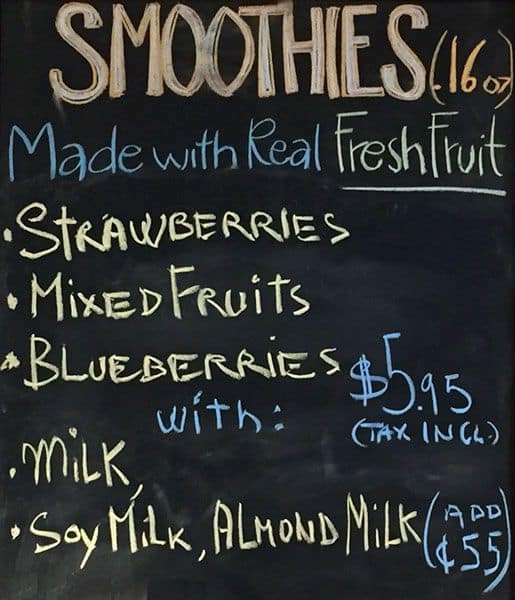 SMOOTHIES (.16 oz)
Made with Real Fresh Fruit
• STRAWBERRIES
• MIXED FRUITS
• BLUEBERRIES $5.95
with: (TAX INCL.)
• MILK,
• Soy MILK, ALMOND MILK (ADD ¢55)